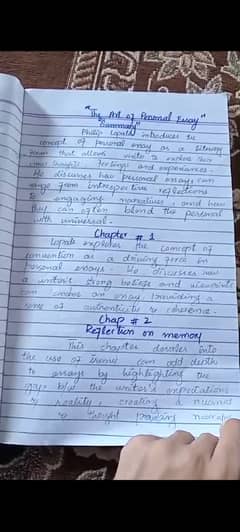 "The Art of Personal Essay"
"Summary"
Philip Lopate introduces the
concept of personal essay as a literary
form that allows write to explore their
own thoughts feelings and experiences.
He discusses how personal essays can
range from introspective reflections
to engaging narratives, and how
they can often blend the personal
with universal.
Chapter # 1
Lopate explores the concept of
conviction as a driving force in
personal essays. He discusses how
a writer's strong beliefs and viewpoints
can anchor an essay, providing a
sense of authenticity & coherence.
Chap # 2
Reflection on memory
This chapter dwelves into
the use of irony can add depth
to essays by highlighting the
gap b/w the writer's expectations
& reality, creating a nuanced
& thought provoking